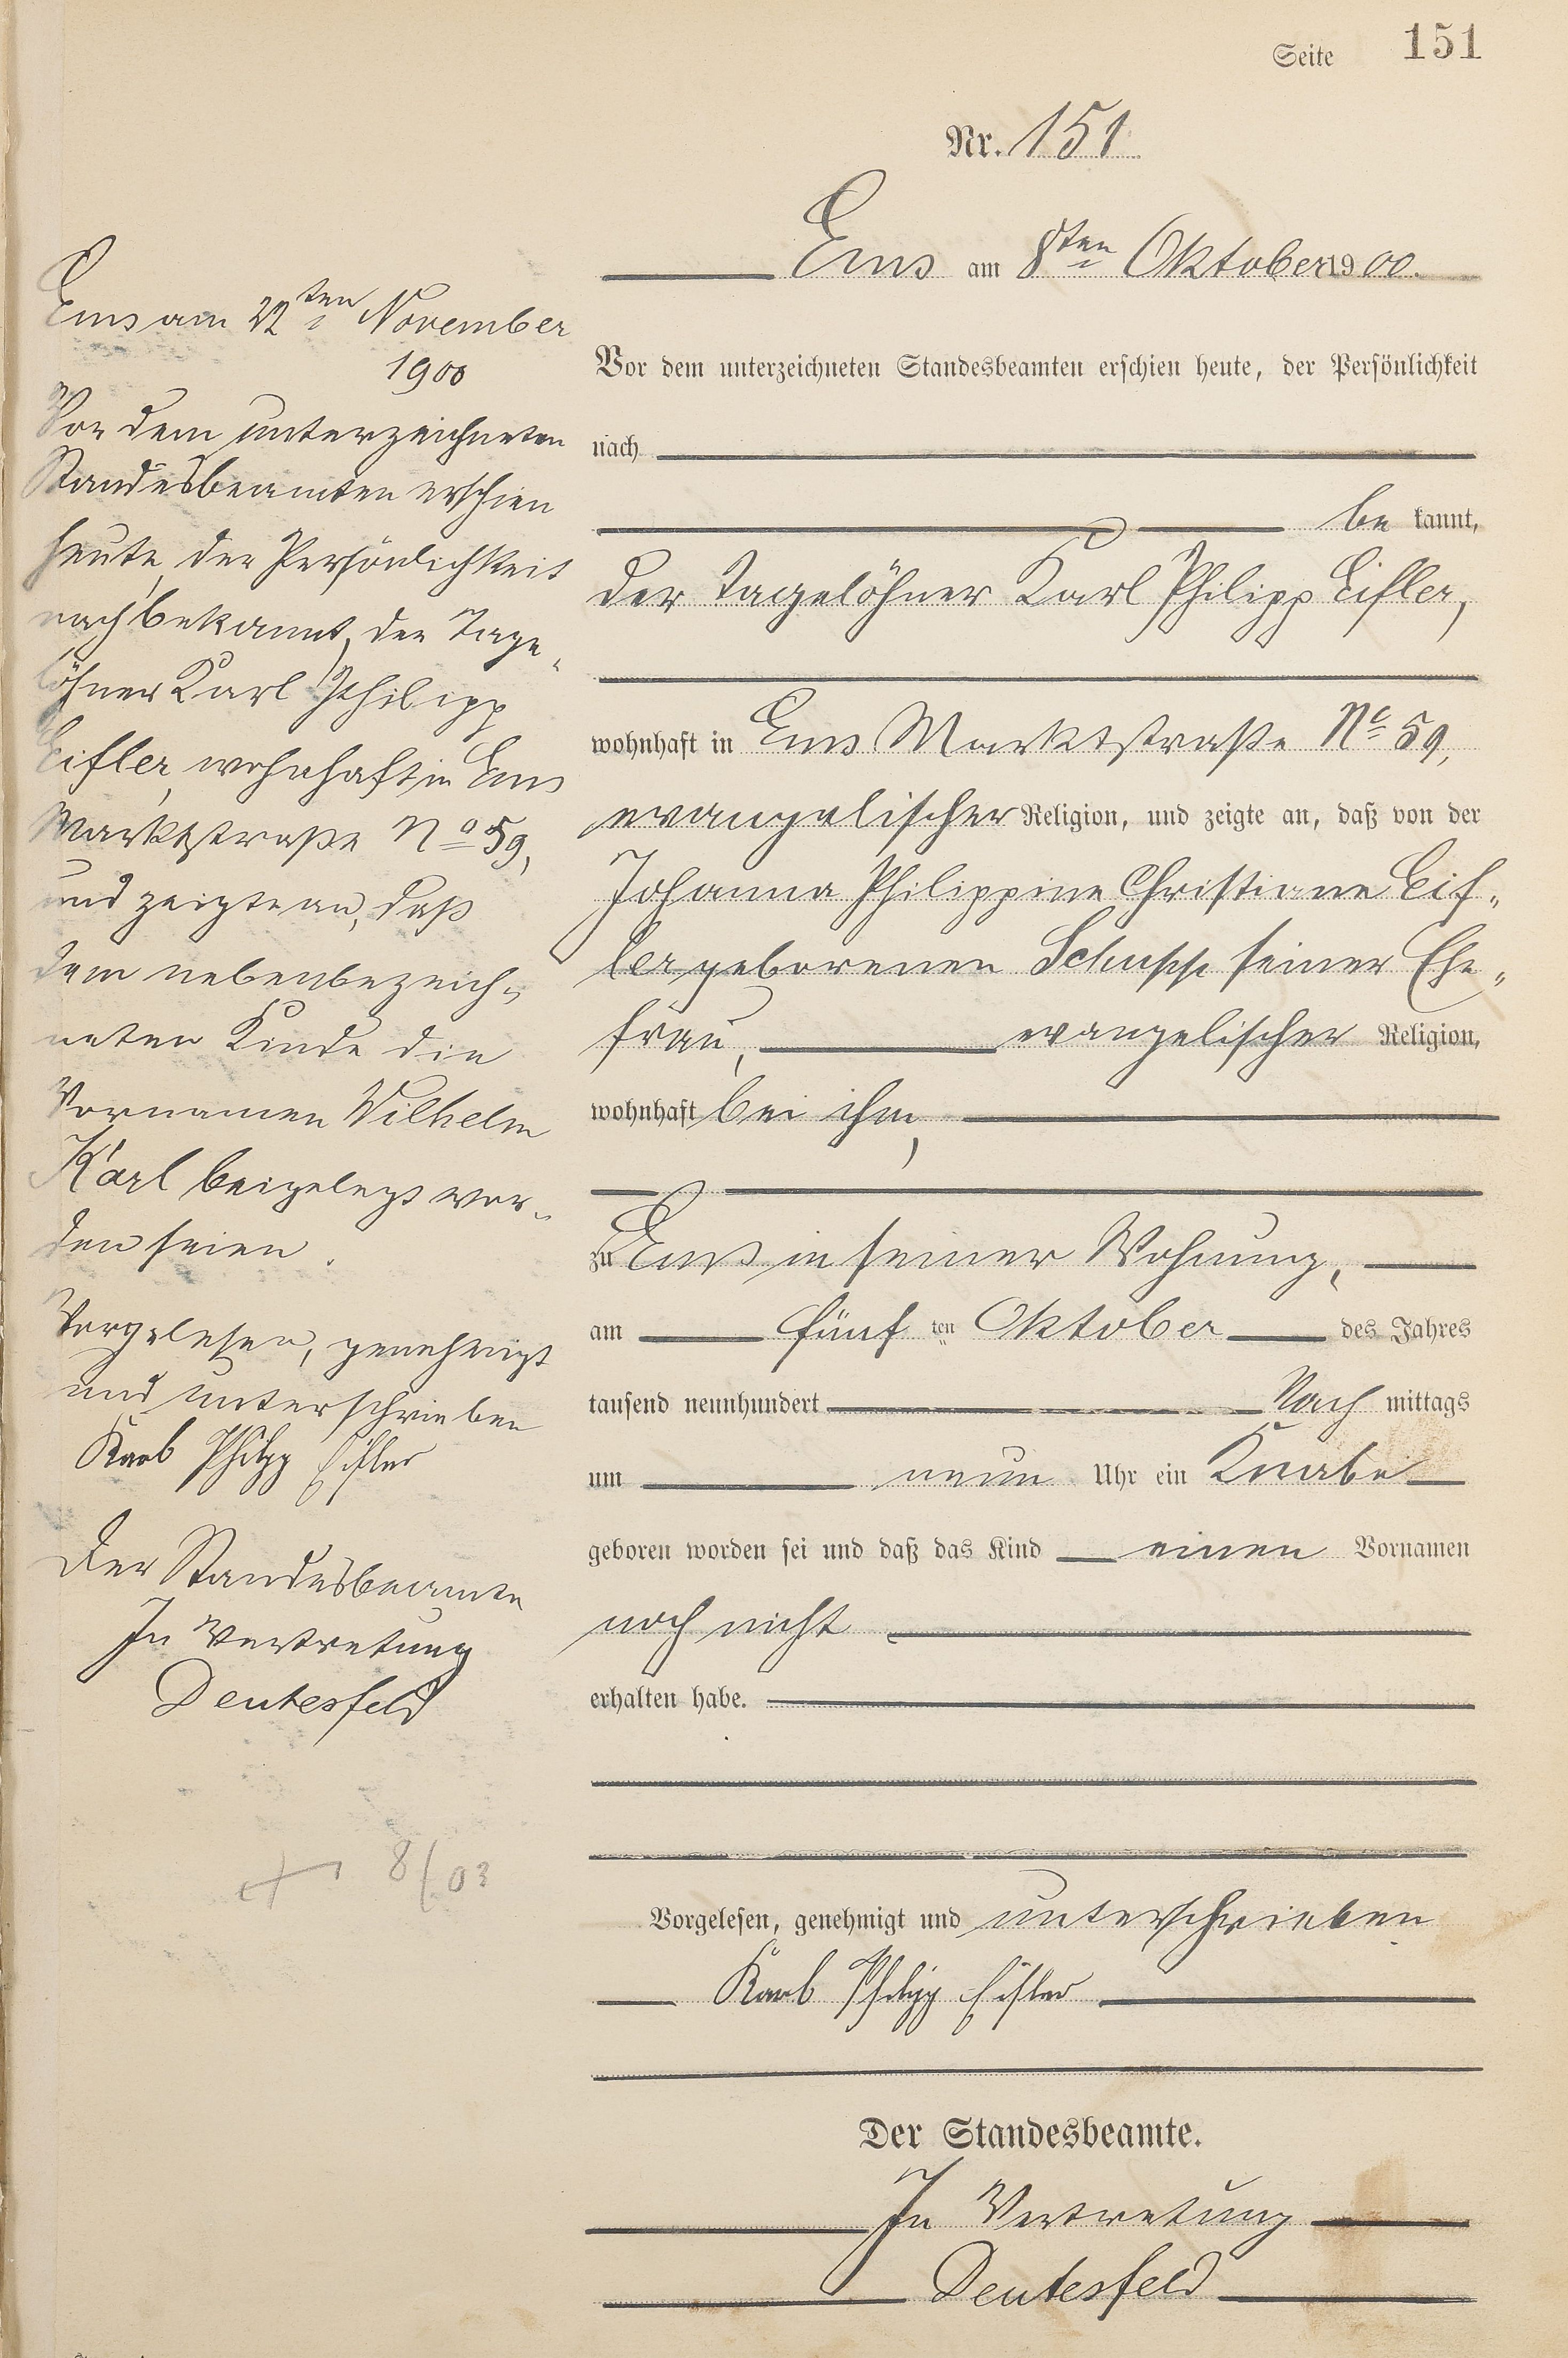 Seite 151
Nr. 151
Ems am 8ten Oktober 1900.
Vor dem unterzeichneten Standesbeamten erschien heute, der Persönlichkeit
nach
bekannt,
der Tagelöhner Karl Philipp Eifler,
wohnhaft in Ems Marktstraße No 59,
evangelischer Religion, und zeigte an, daß von der
Johanna Philippine Christiane Eif„
ler geborenen Schupp seiner Ehe„
frau, evangelischer Religion,
wohnhaft bei ihm,
zu Ems in seiner Wohnung,
am fünf ten Oktober des Jahres
tausend neunhundert Nach mittags
um neun Uhr ein Knabe
geboren worden sei und daß das Kind einen Vornamen
noch nicht
erhalten habe.
Vorgelesen, genehmigt und unterschrieben
Karl Philipp Eifler
Der Standesbeamte.
In Vertretung
Deutesfeld
Ems am 22ten November
1900
Vor dem unterzeichneten
Standesbeamten erschien
heute, der Persönlichkeit
nach bekannt, der Tage„
löhner Karl Philipp
Eifler, wohnhaft in Ems
Marktstraße No 59,
und zeigte an, daß
dem nebenbezeich„
neten Kinde die
Vornamen Wilhelm
Karl beigelegt wor„
den seien.
Vorgelesen, genehmigt
und unterschrieben
Karl Philipp Eifler
Der Standesbeamte
In Vertretung
Deutesfeld
+ 8/03